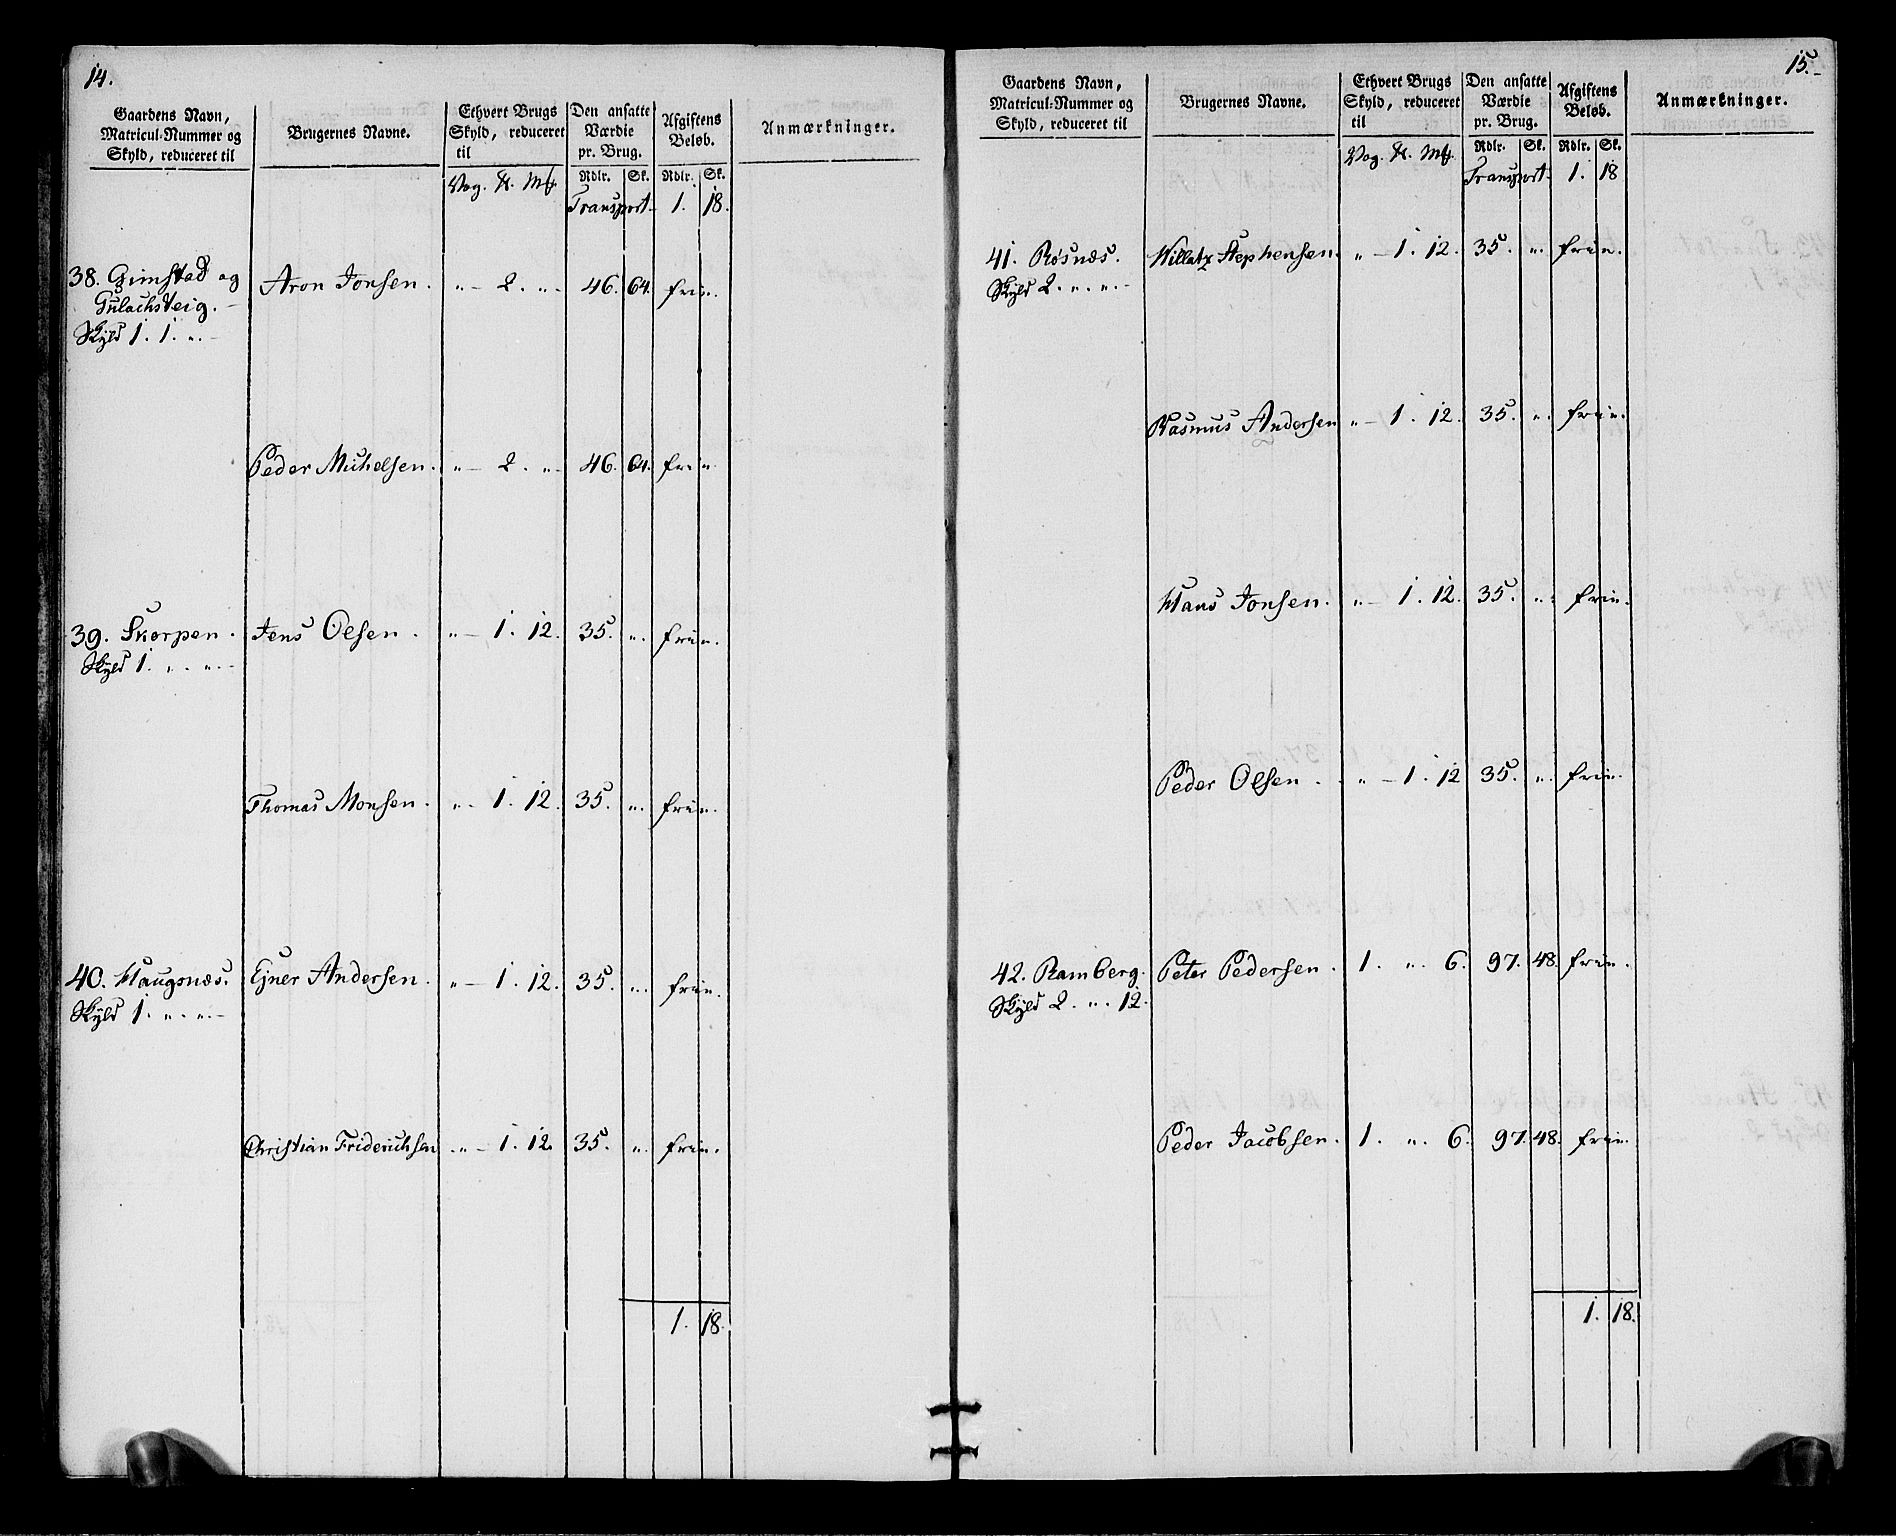 14.
Gaardens Navn, Matricul-Nummer og Skyld, reduceret til
Brugernes Navne.
Ethvert Brugs Skyld, reduceret til
Den ansatte Værdie pr. Brug.
Afgiftens Beløb.
Anmærkninger.
Vog. ℔. Mk. Rdlr. Sk. Rdlr. Sk.
Transport 1. 18.
38. Gimstad og Aron Jonsen. „ – 2. „ – 46. 64. frie.
Gulachsteig. –
Skyld 1. 1. „ –
Peder Michelsen. „ – 2. „ – 46. 64. frie.
39. Skorpen. Jens Olsen. „ – 1. 12. 35. „. frie.
Skyld 1. „. „. –
Thomas Monsen. „ – 1. 12. 35. „. frie.
40. Haugsnæs. Ejner Andersen. „ – 1. 12. 35. „. frie.
Skyld 1. „. „. –
Christian Friderichsen „ – 1. 12. 35. „. frie.
1. 18.
15. –
Gaardens Navn, Matricul-Nummer og Skyld, reduceret til
Brugernes Navne.
Ethvert Brugs Skyld, reduceret til
Den ansatte Værdie pr. Brug.
Afgiftens Beløb.
Anmærkninger.
Vog. ℔. Mk. Rdlr. Sk. Rdlr. Sk.
Transport. 1. 18
41. Røsnæs. Willatz Stephensen. „ – 1. 12. 35. „. frie.
Skyld 2. „. „. –
Rasmus Andersen „ – 1. 12. 35. „. frie.
Hans Jonsen. „ – 1. 12. 35. „. frie.
Peder Olsen. „ – 1. 12 35. „. frie.
42. Ramberg. Peter Pedersen. 1. „. 6. 97. 48. frie.
Skyld 2. „. 12.
Peder Jacobsen. 1. „. 6. 97. 48. frie.
1. 18.